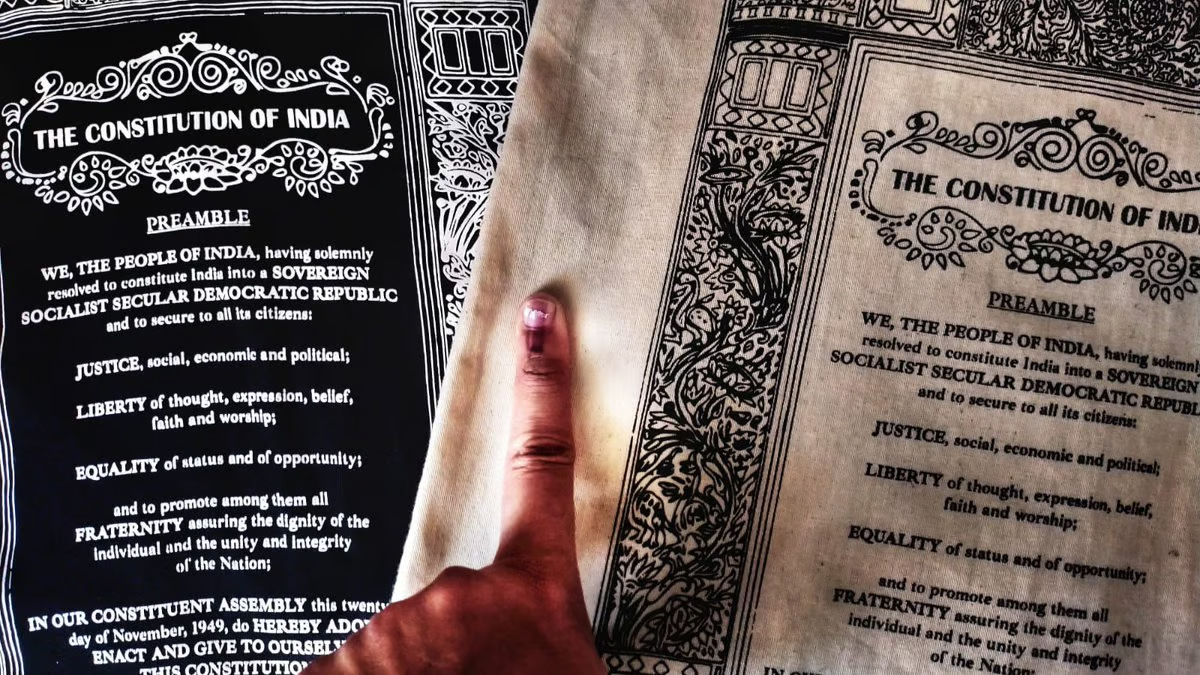 THE CONSTITUTION OF INDIA
PREAMBLE
WE, THE PEOPLE OF INDIA, having solemnly
resolved to constitute India into a SOVEREIGN
SOCIALIST SECULAR DEMOCRATIC REPUBLIC
and to secure to all its citizens:
JUSTICE, social, economic and political;
LIBERTY of thought, expression, belief,
faith and worship;
EQUALITY of status and of opportunity;
and to promote among them all
FRATERNITY assuring the dignity of the
individual and the unity and integrity
of the Nation;
IN OUR CONSTITUENT ASSEMBLY this twenty
day of November, 1949, do HEREBY ADO
ENACT AND GIVE TO OURSEL
THIS CONSTITUTION
THE CONSTITUTION OF IND
PREAMBLE
WE, THE PEOPLE OF INDIA, having solemn
resolved to constitute India into a SOVEREIGN
SOCIALIST SECULAR DEMOCRATIC REPUBL
and to secure to all its citizens:
JUSTICE, social, economic and political;
LIBERTY of thought, expression, belief,
faith and worship;
EQUALITY of status and of opportunity;
and to promote among them all
FRATERNITY assuring the dignity of the
individual and the unity and integrity
of the Nation;
IN OUR